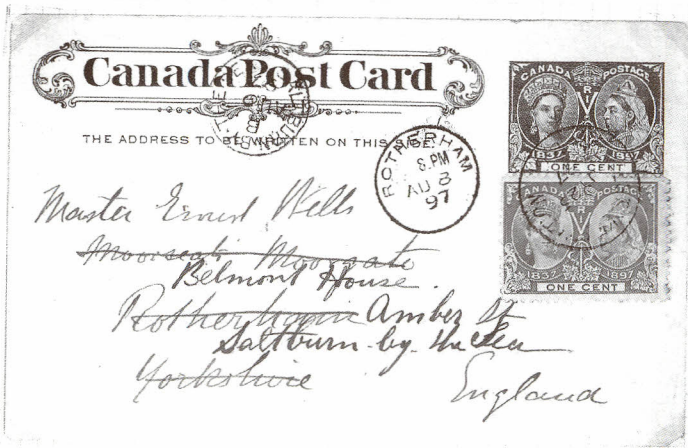 Canada Post Card
THE ADDRESS TO BE WRITTEN ON THIS SIDE.
CANADA POSTAGE
V R
1837 1897
ONE CENT
ROTHERHAM
8.PM
AU 8
97
CANADA POSTAGE
V R
1837 1897
ONE CENT
Master Ernest Wells
Moorseat Moorgate
Belmont House
Rotherham Amber St
Saltburn-by-the-Sea
Yorkshire
England